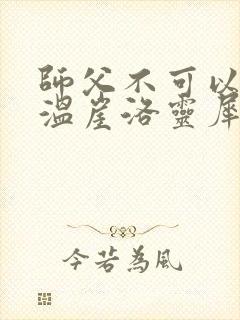 師父不可以
溫崖洛靈犀
今若為風